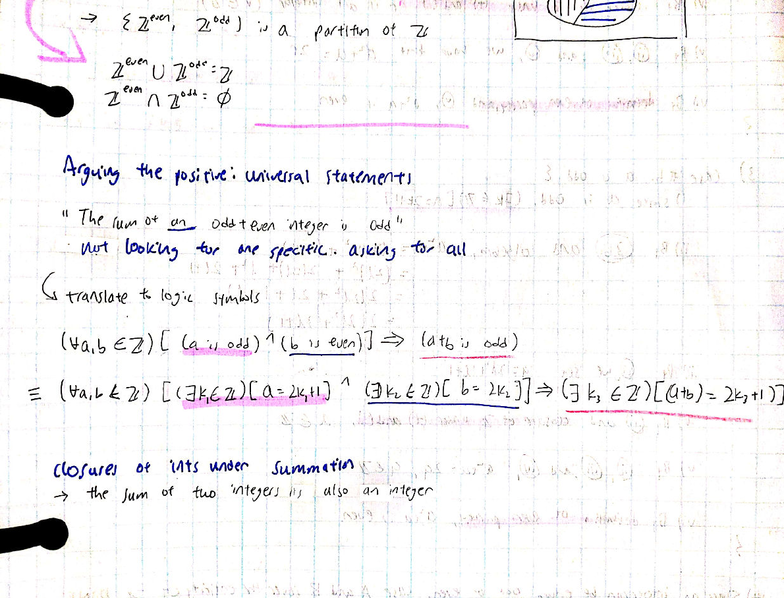 → { ℤᵉᵛᵉⁿ, ℤᵒᵈᵈ } is a partition of ℤ
ℤᵉᵛᵉⁿ ∪ ℤᵒᵈᵈ = ℤ
ℤᵉᵛᵉⁿ ∩ ℤᵒᵈᵈ = ∅
Arguing the positive: universal statements
"The sum of an odd + even integer is odd"
not looking for one specific. asking for all
translate to logic symbols
(∀a,b ∈ ℤ) [ (a is odd) ^ (b is even)] ⇒ (a+b is odd)
≡ (∀a,b ∈ ℤ) [(∃k₁∈ℤ)[a = 2k₁+1] ^ (∃k₂ ∈ ℤ)[ b = 2k₂]] ⇒ (∃ k₃ ∈ ℤ)[(a+b) = 2k₃+1)]
closures of ints under summation
→ the sum of two integers is also an integer